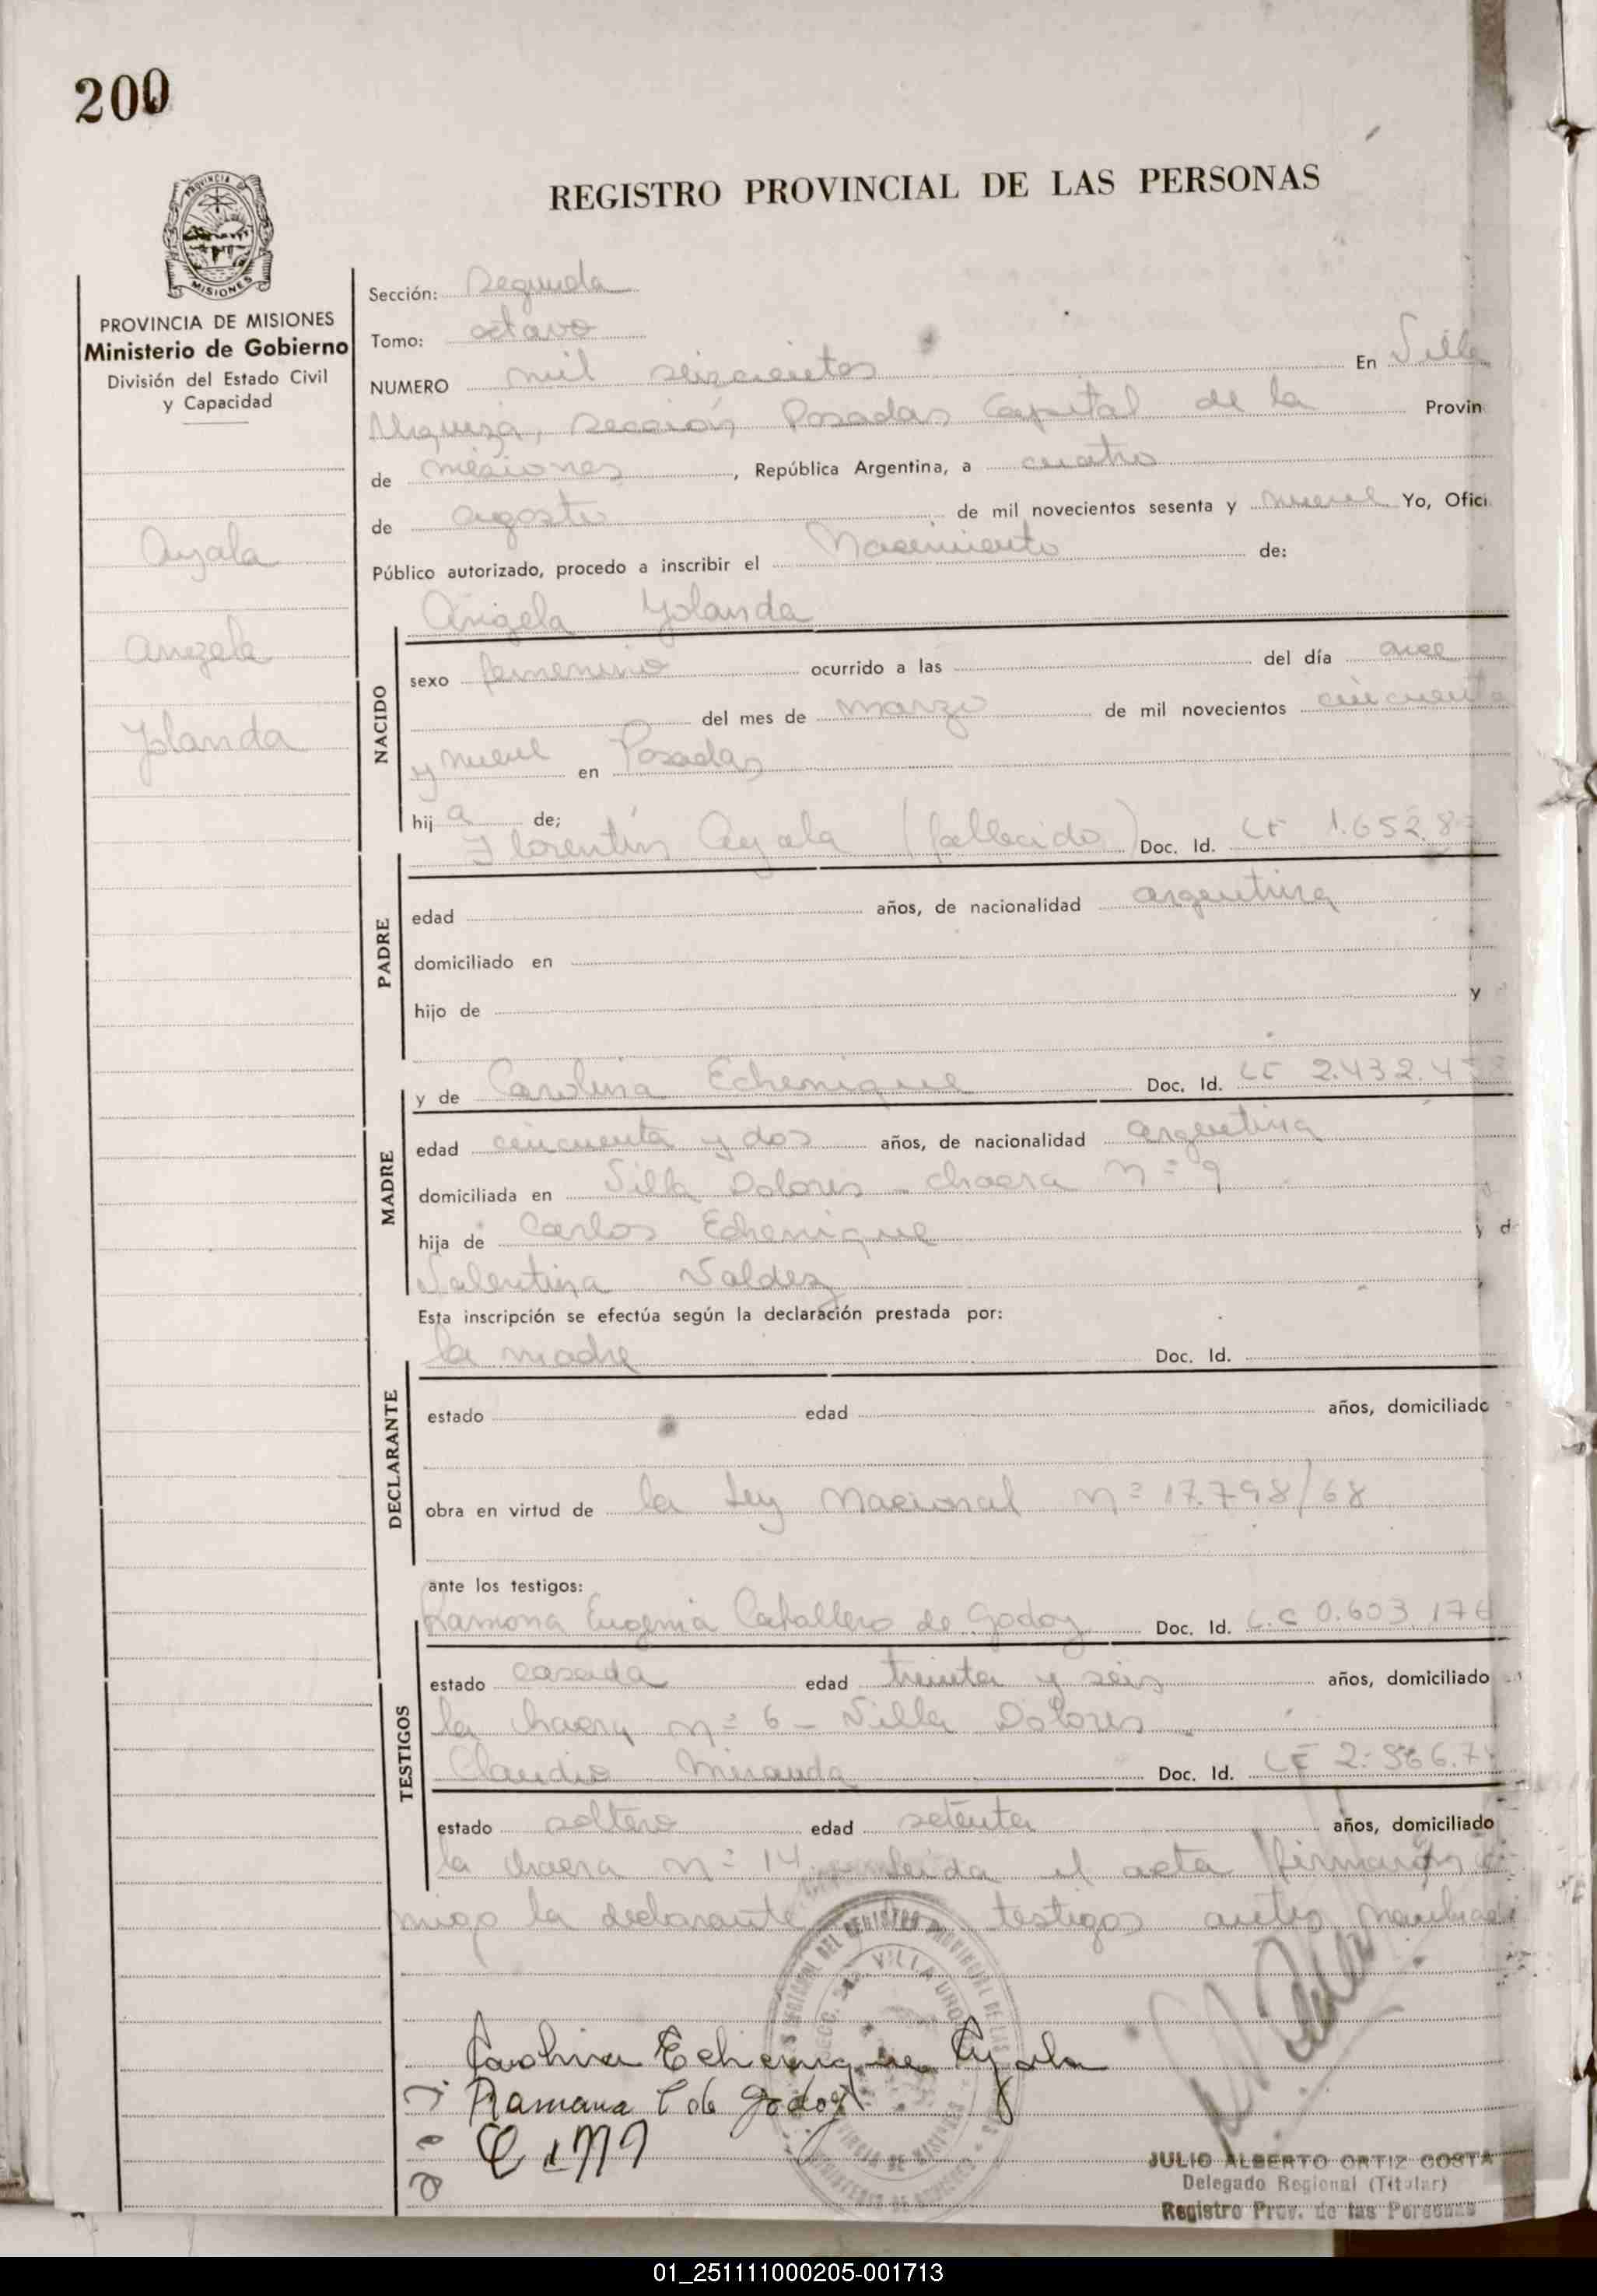 200
REGISTRO PROVINCIAL DE LAS PERSONAS
PROVINCIA DE
MISIONES
PROVINCIA DE MISIONES
Ministerio de Gobierno
División del Estado Civil
y Capacidad
Ayala
Angela
Yolanda
Sección: Segunda
Tomo: octavo
NUMERO mil seizcientos En Villa
Urquiza, Sección Posadas Capital de la Provin
de misiones, República Argentina, a cuatro
de agosto de mil novecientos sesenta y nueve Yo, Ofici
Público autorizado, procedo a inscribir el Nacimiento de:
NACIDO
Angela Yolanda
sexo femenino ocurrido a las del día once
del mes de marzo de mil novecientos cincuenta
y nueve en Posadas
hij a de;
PADRE
Florentín Ayala (fallecido) Doc. Id. LE 1.652.8
edad años, de nacionalidad argentina
domiciliado en
hijo de y
MADRE
y de Carolina Echenique Doc. Id. LC 2.432.4
edad cincuenta y dos años, de nacionalidad argentina
domiciliada en Villa Dolores - chacra n= 9
hija de Carlos Echenique y d
Valentina Valdez
Esta inscripción se efectúa según la declaración prestada por:
DECLARANTE
la madre Doc. Id.
estado edad años, domiciliado
obra en virtud de la Ley Nacional n= 17.798/68
ante los testigos:
TESTIGOS
Ramona Eugenia Caballero de Godoy Doc. Id. L.C 0.603.176
estado casada edad treinta y seis años, domiciliado
la chacra n= 6 - Villa Dolores
Claudio Miranda Doc. Id. LE 2.
estado soltero edad setenta años, domiciliado
la chacra n= 14 leida el acta firmaron
migo la declarante testigos antes
Carolina Echenique Ayala
Ramana C de godoy
JULIO ALBERTO ORTIZ COSTA
Delegado Regional (Titular)
Registro Prov. de las Personas
01_251111000205-001713